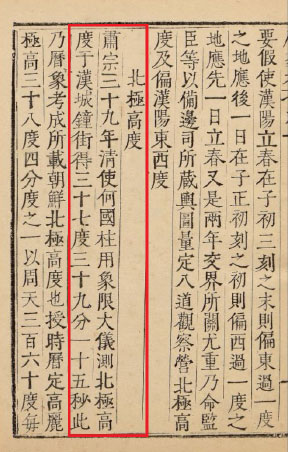 要假使漢陽立春在子初三刻之末則偏東過一度
之地應後一日在子正初刻之初則偏西過一度之
地應先一日立春又是兩年交界所關尤重乃命監
臣等以備邊司所藏輿圖量定八道觀察營北極高
度及偏漢陽東西度
北極高度
肅宗三十九年清使何國柱用象限大儀測北極高
度于漢城鐘街得三十七度三十九分一十五秒此
乃曆象考成所載朝鮮北極高度也授時曆定高麗
極高三十八度四分度之一以周天三百六十度每